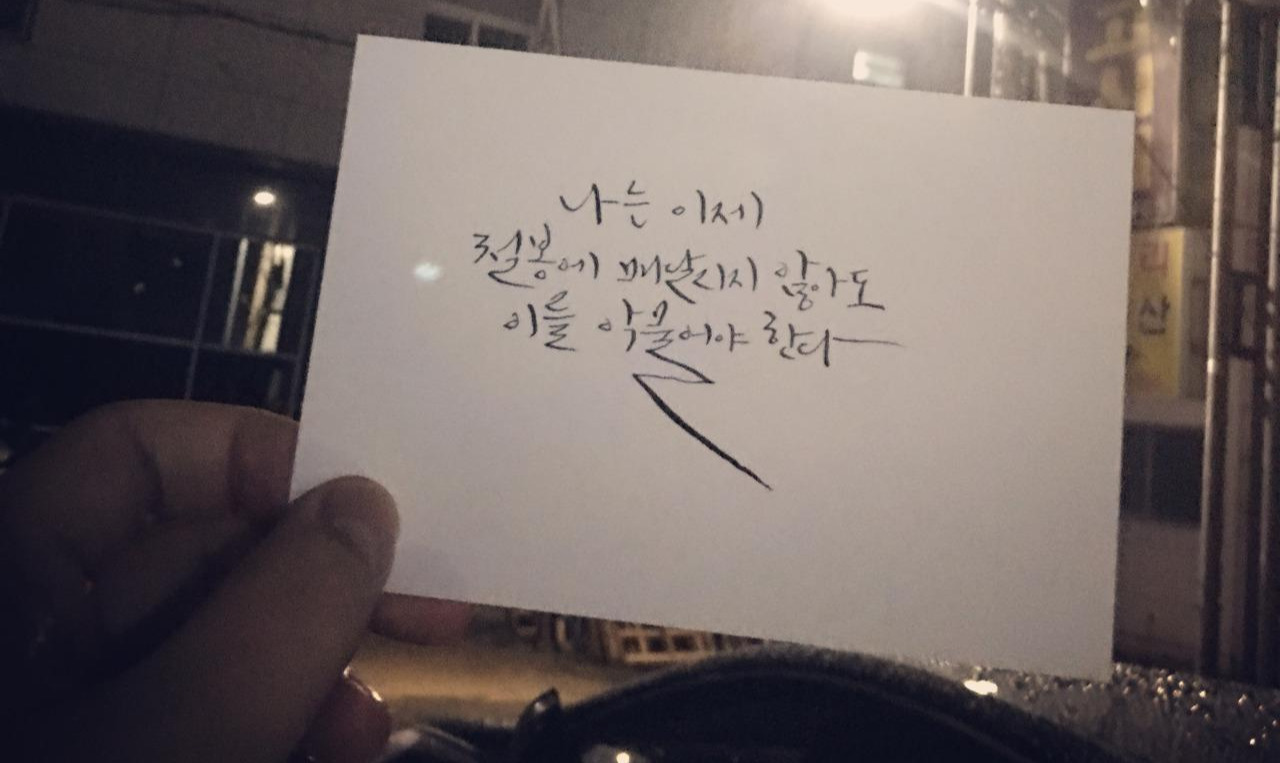 나는 이제
철봉에 매달리지 않아도
이를 악물어야 한다
산